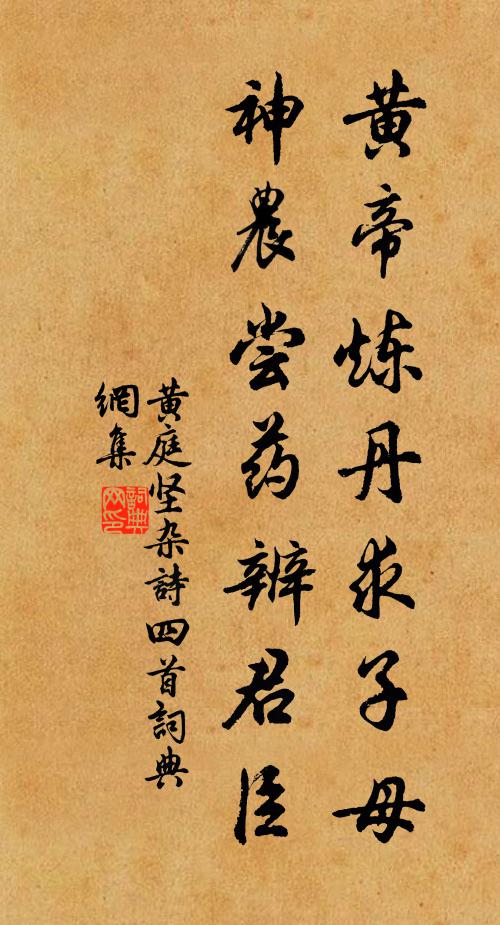 黄帝炼丹求子母
神農尝药辨君臣
黄庭坚杂詩四首詞典
網集
詞典
网印